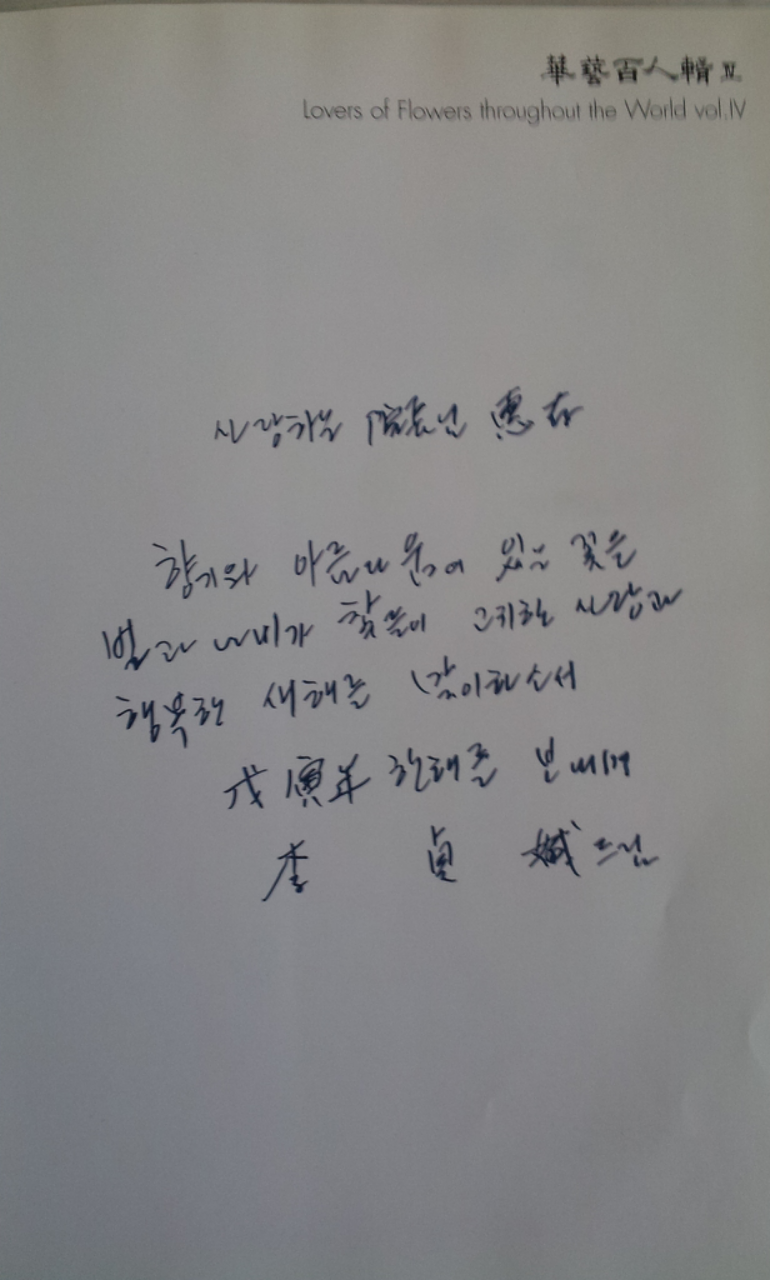 華藝百人輯 Ⅳ
Lovers of Flowers throughout the World vol.IV
사랑하는 院長님 惠存
향기와 아름다움이 있는 꽃을
벌과 나비가 찾듯이 귀하는 사랑과
행복한 새해를 맞이하소서
戊寅年 한해를 보내며
李 貞 드림